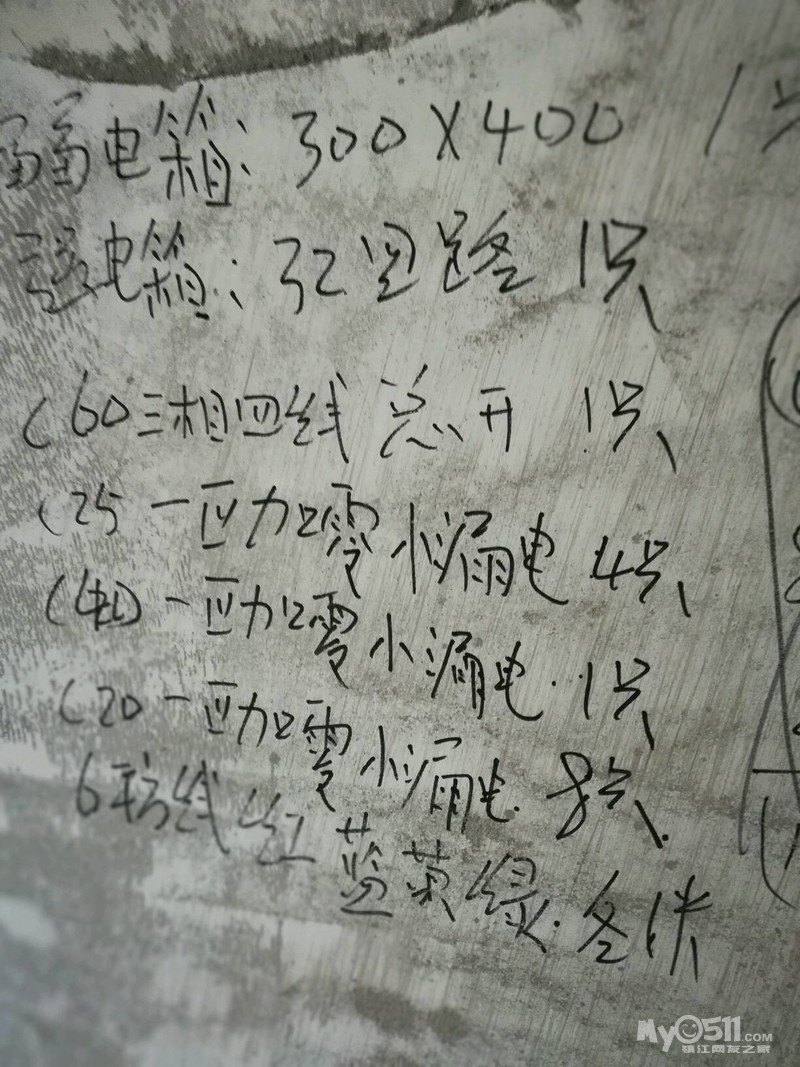 弱电箱：300X400 1只
强电箱：32回路 1只
C60三相四线 总开 1只
C25 一应加零 小漏电 4只
C40 一应加零 小漏电 1只
C20 一应加零 小漏电 8只
6平方线 红 蓝 黄 绿 各1米
MyO511.COM
镇江网友之家